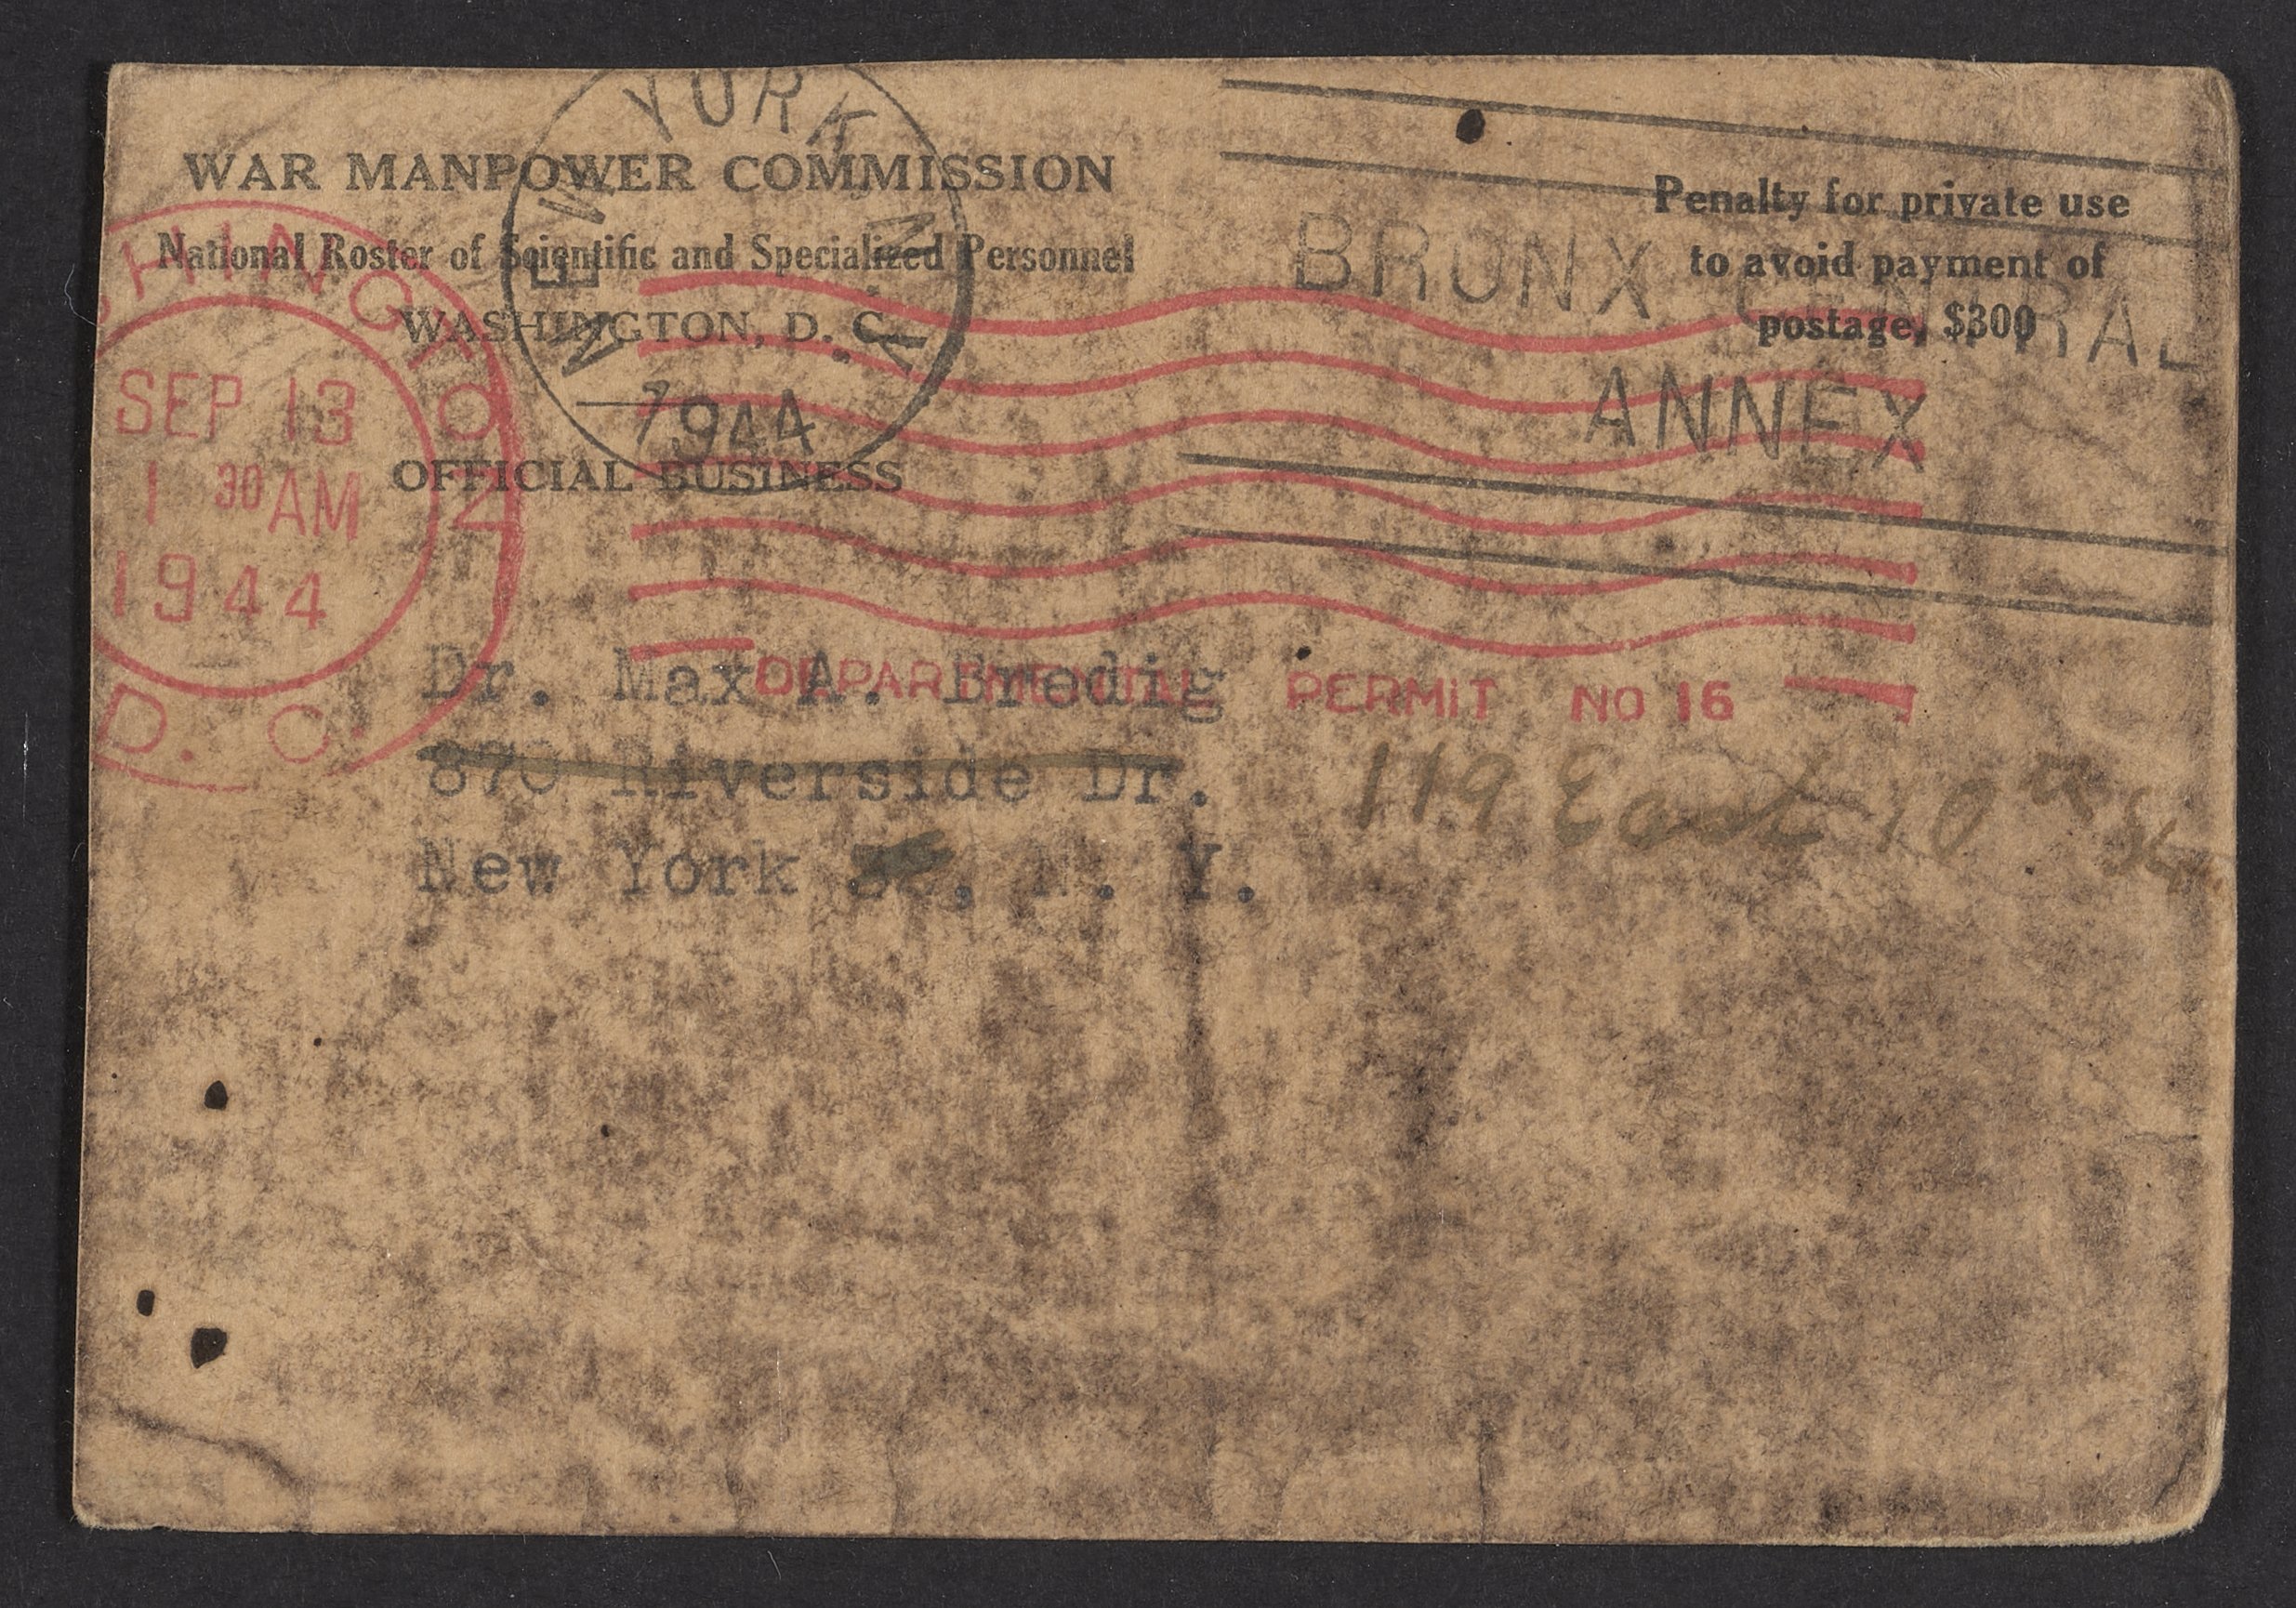 WAR MANPOWER COMMISSION
National Roster of Scientific and Specialized Personnel
WASHINGTON, D. C.
OFFICIAL BUSINESS
Penalty for private use
to avoid payment of
postage, $300
NEW YORK, N.Y.
1944
BRONX CENTRAL
ANNEX
WASHINGTON
D. C.
SEP 13
1 30 AM
1944
DEPARTMENTAL PERMIT NO 16
Dr. Max A. Bredig
870 Riverside Dr.
119 East 10th Str.
New York , N. Y.